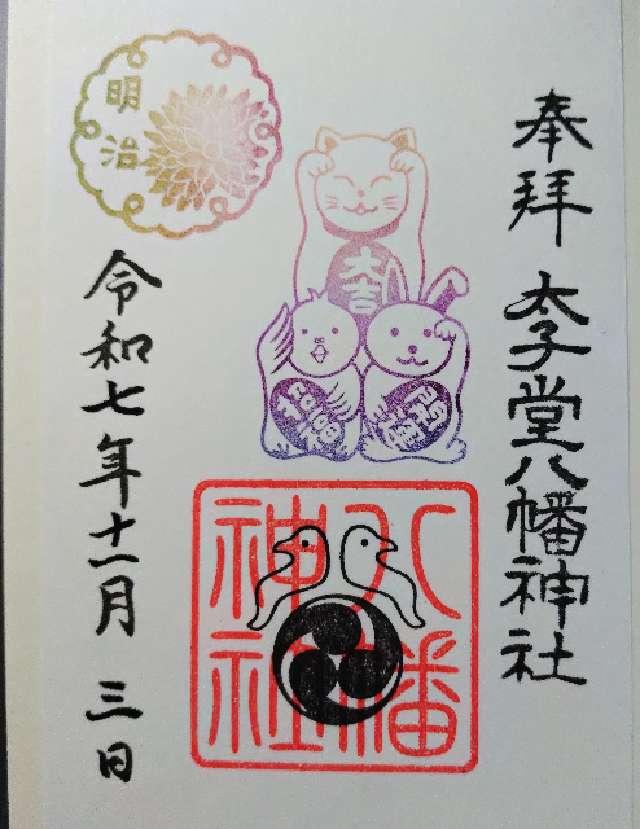 奉拝 太子堂八幡神社
大吉
招福
八幡
神社
明治
令和七年十一月三日